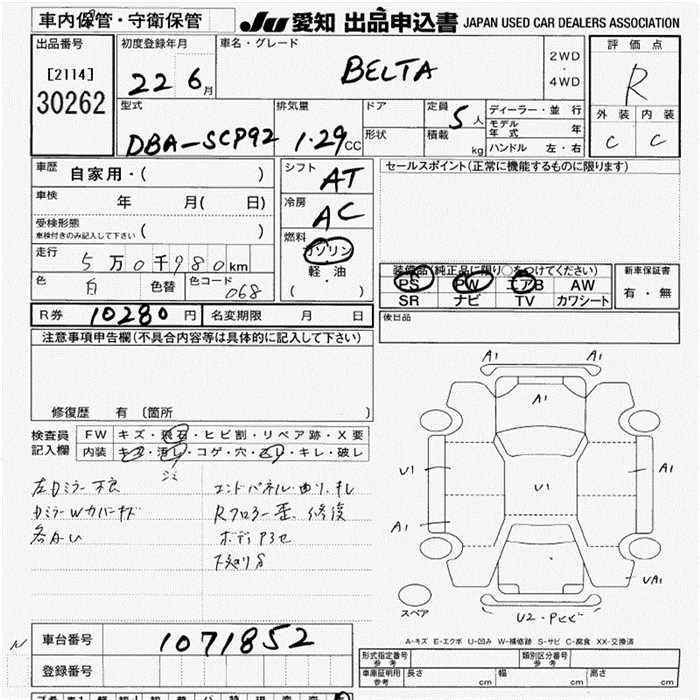 車内保管・守衛保管
JU 愛知 出品申込書 JAPAN USED CAR DEALERS ASSOCIATION
出品番号
[2114]
30262
初度登録年月
22 6月
車名・グレード
BELTA
2WD
・
4WD
評価点
R
外装 内装
C C
型式
DBA-SCP92
排気量
1.29CC
ドア
形状
定員
5人
積載
kg
ディーラー・並行
モデル年式 年
ハンドル 左・右
車歴
自家用・( )
車検
年 月( 日)
受検形態
車検付きのみ記入して下さい ( )
走行
5万0千980km
色
白
色替
色コード
068
シフト
AT
冷房
AC
燃料
ガソリン
軽・油
( ・ )
セールスポイント(正常に機能するものに限ります)
装備品(純正品に限り○をつけてください)
PS PW エアB AW
SR ナビ TV カワシート
新車保証書
有・無
後日品
R券 10280円
名変期限 月 日
注意事項申告欄(不具合内容等は具体的に記入して下さい)
修復歴 有 [箇所 ]
検査員
記入欄
FW キズ・飛石・ヒビ割・リペア跡・X要
内装 キズ・汚レ・コゲ・穴・スレ・キレ・破レ
シミ
左Dミラー不良
DミラーWカバーキズ
各AU
エンドパネル曲り、キレ
Rフロアー歪、修復
ボディ
A1 A1
A1
U1
U1
A1
A1
UA1
U2・
スペア
A-キズ E-エクボ U-凹み W-補修跡 S-サビ C-腐食 XX-交換済
N
車台番号
1071852
登録番号
形式指定番号
参考
類別区分番号
参考
車庫証明用
参考
長さ cm
幅 cm
高さ cm